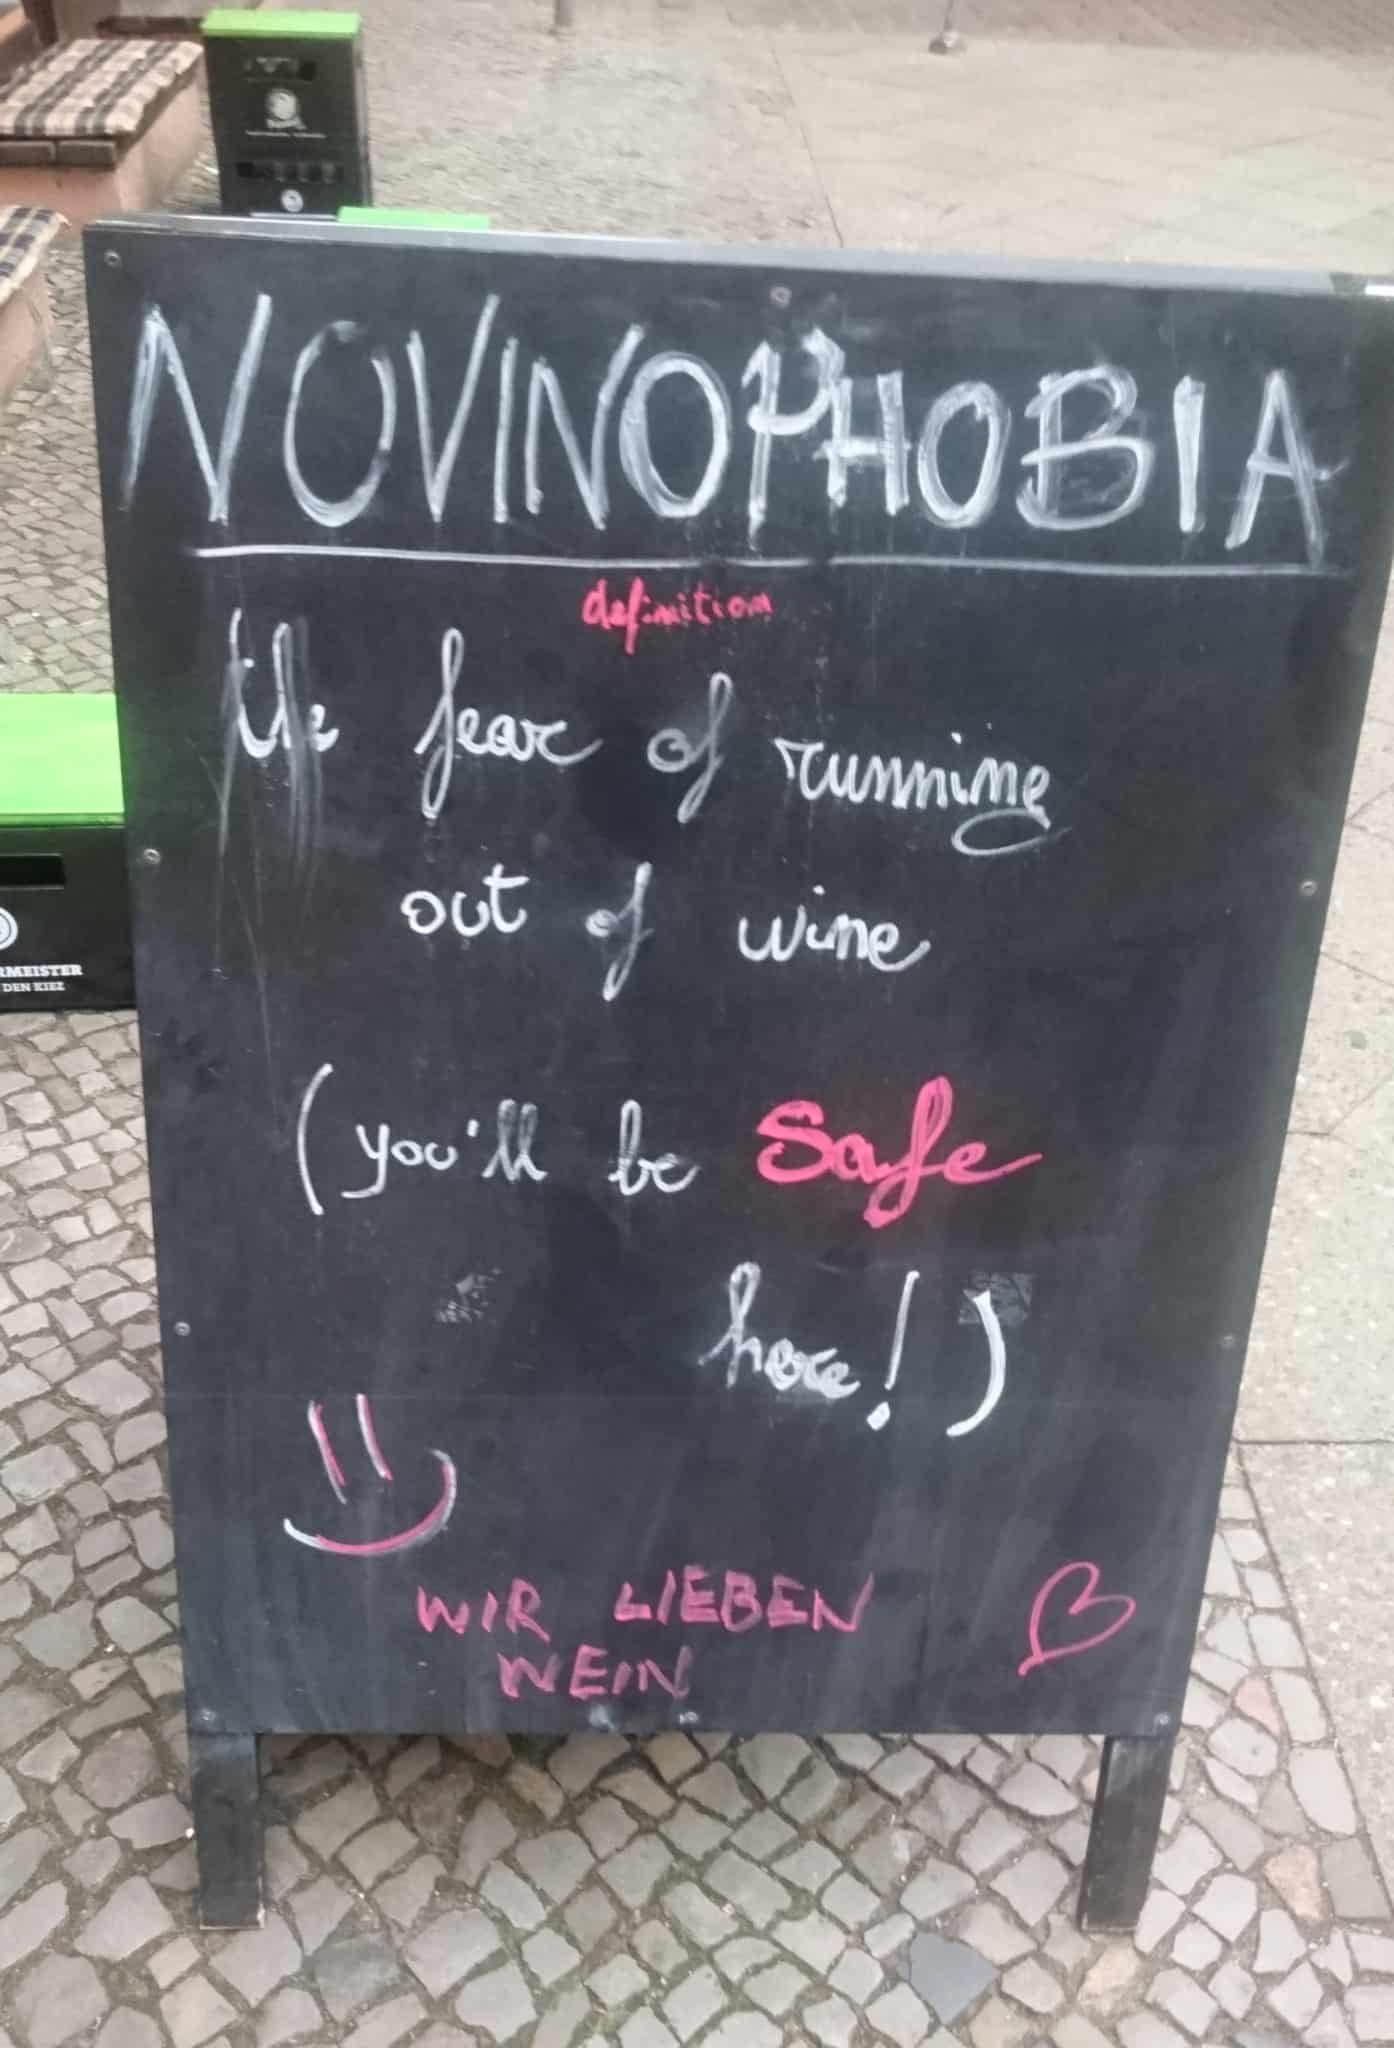 NOVINOPHOBIA
definition
the fear of running
out of wine
(you'll be safe
here!)
WIR LIEBEN
WEIN
RMEISTER
DEN KIEZ